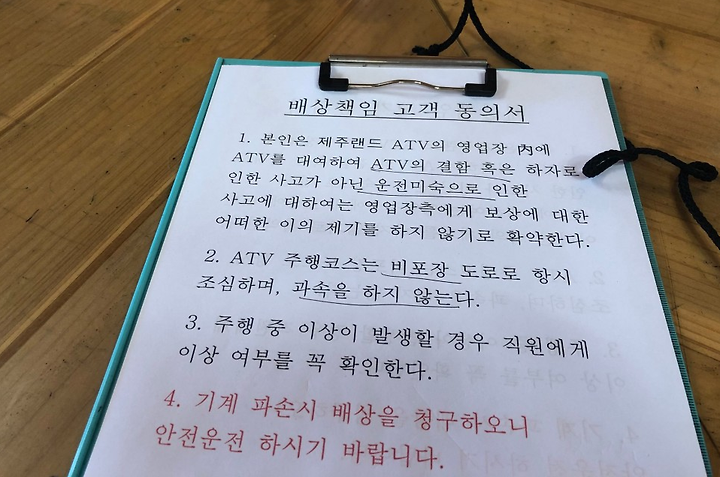 배상책임 고객 동의서
1. 본인은 제주랜드 ATV의 영업장 內에
ATV를 대여하여 ATV의 결함 혹은 하자로
인한 사고가 아닌 운전미숙으로 인한
사고에 대하여는 영업장측에게 보상에 대한
어떠한 이의 제기를 하지 않기로 확약한다.
2. ATV 주행코스는 비포장 도로로 항시
조심하며, 과속을 하지 않는다.
3. 주행 중 이상이 발생할 경우 직원에게
이상 여부를 꼭 확인한다.
4. 기계 파손시 배상을 청구하오니
안전운전 하시기 바랍니다.